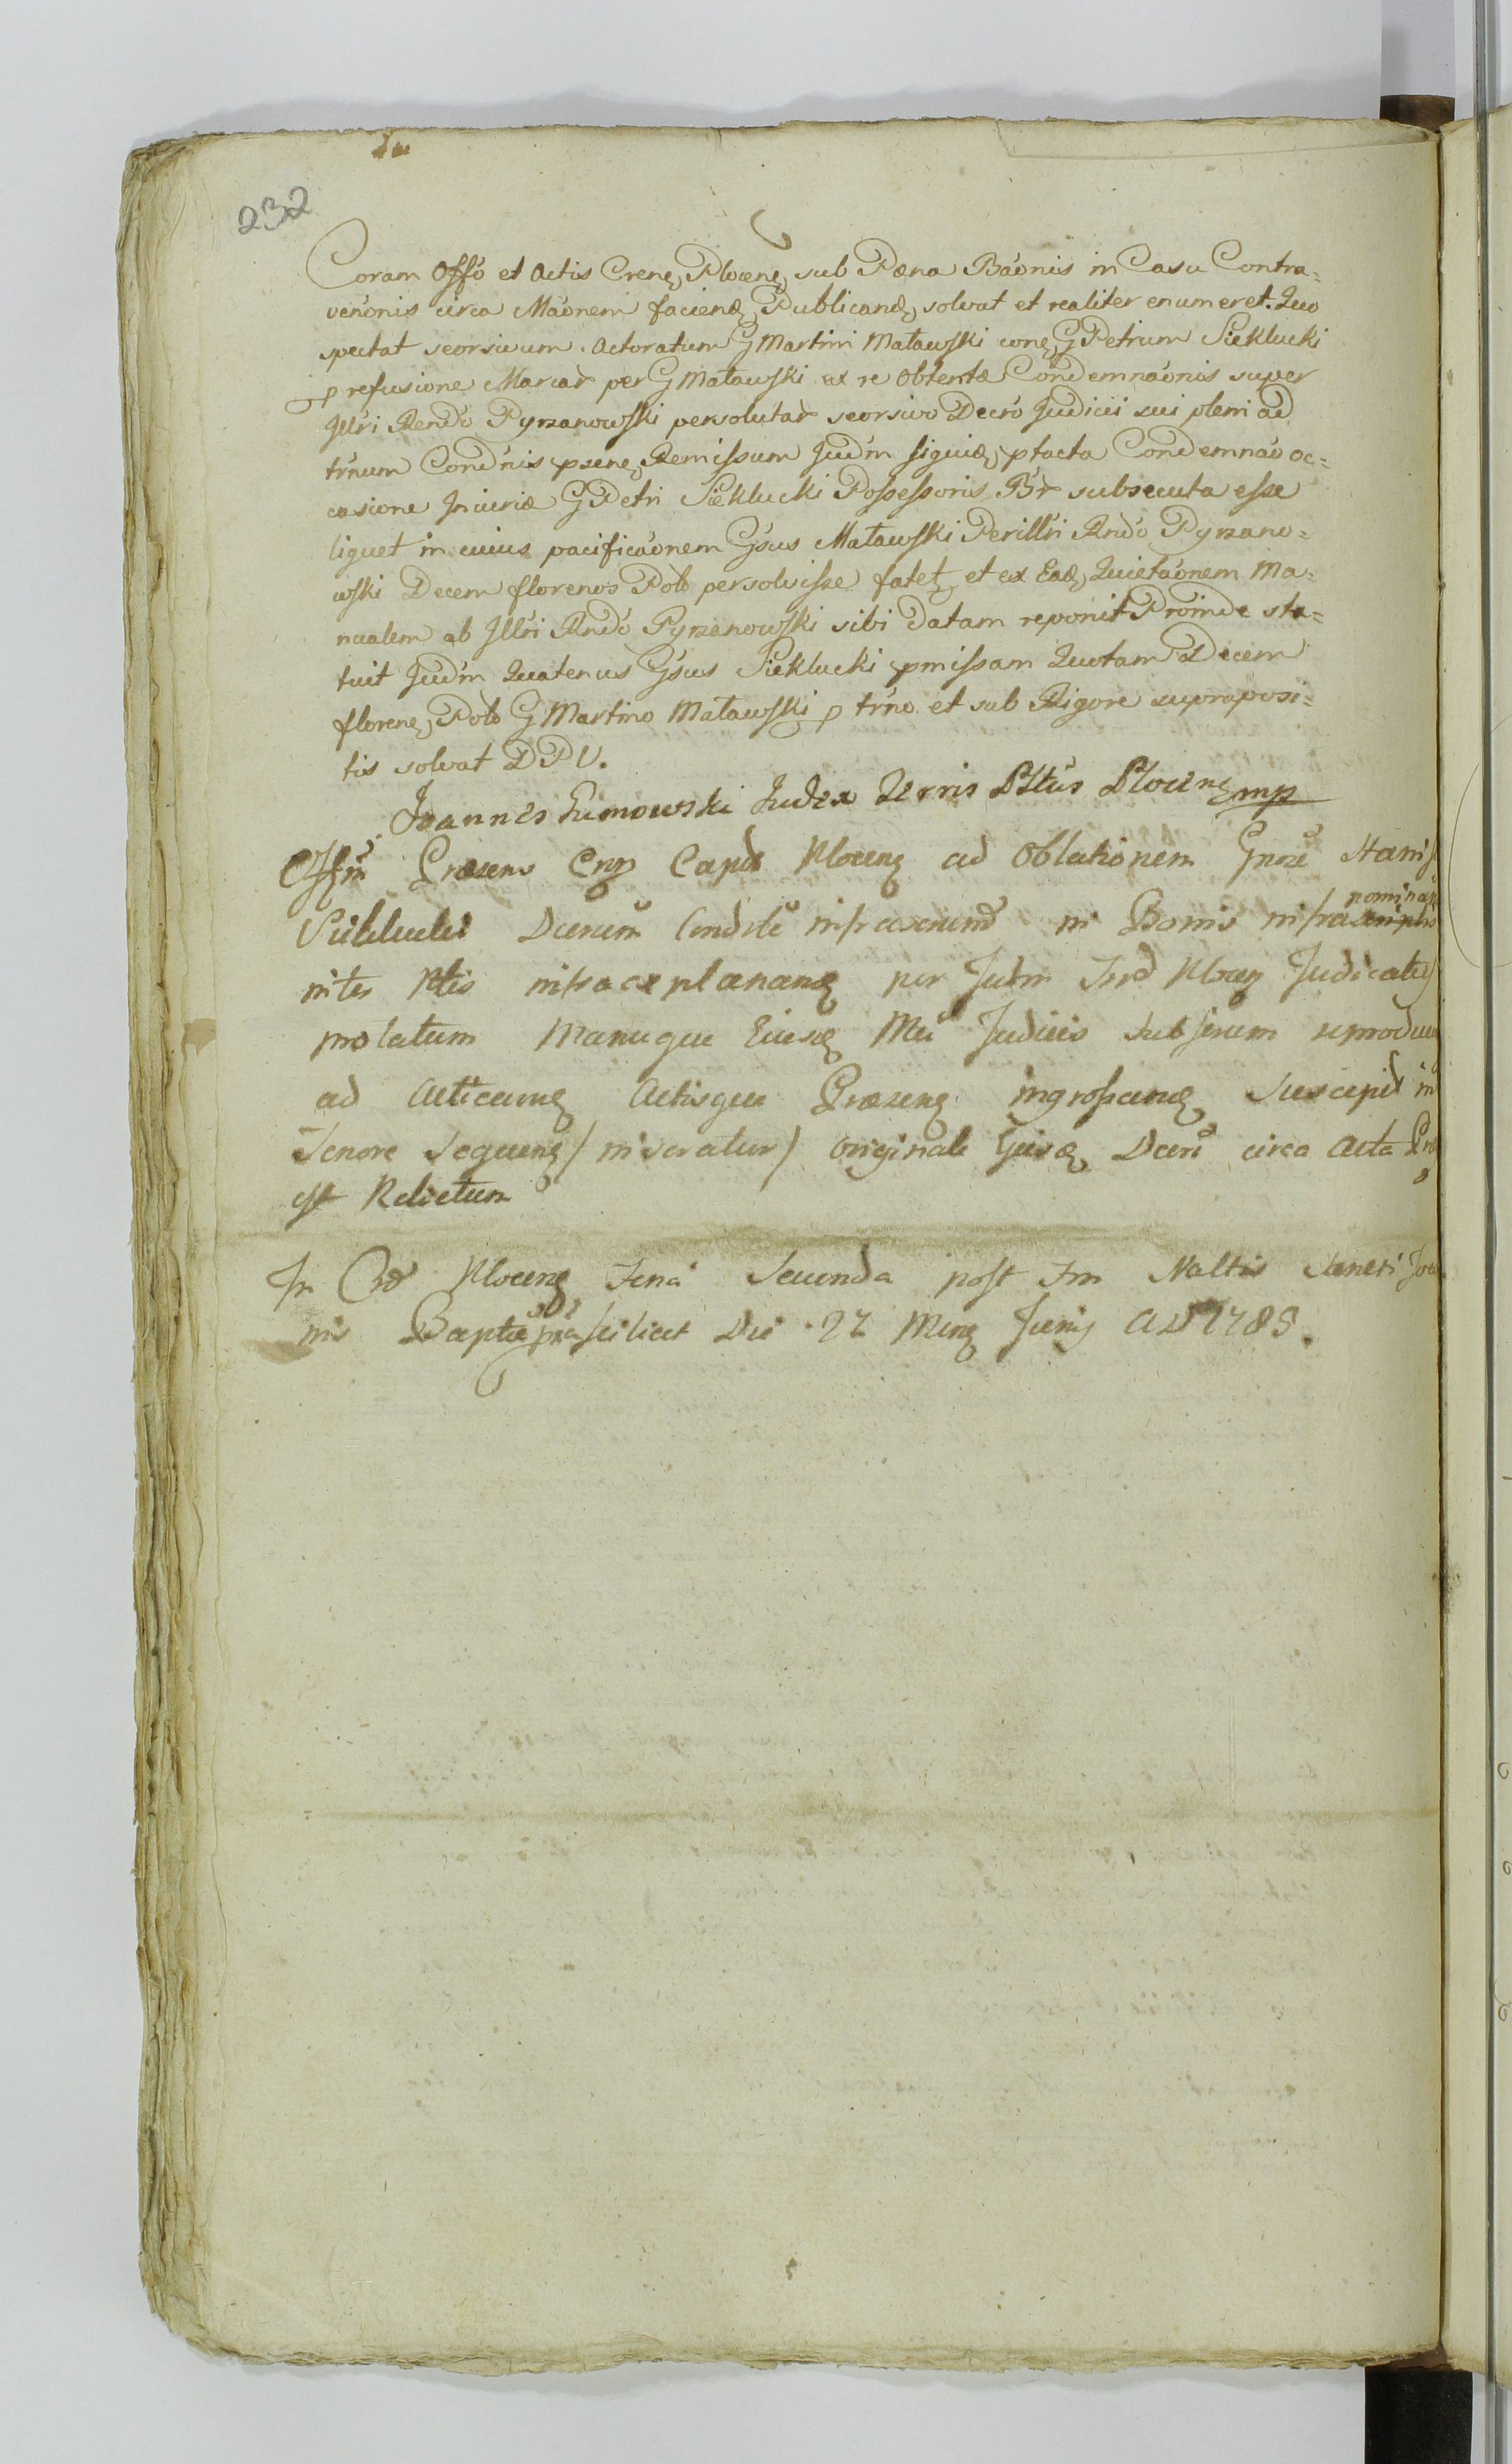 232
Coram Offo et Actis Crenę Plocenę sub Pæna Báonis in Casu Contra=
venónis circa Máonem faciendę Publicandę solvat et realiter enumeret. Quo
spectat seorsivum Actoratum G Martini Matawski conę G Petrum Sieklucki
p refusione Marcar per G Matawski ex re obtentæ Condemnáonis super
Illri Rendo Pyrzanowski persolutar seorsivo Decró Judicii sui pleni ad
trnum Condnis psenę Remissum Judm siquidę ptacta Condemnáo oc=
casione Injuriæ G Petri Sieklucki Possessoris Br subsecuta esse
liquet in cuius pacificáonem Gsus Matawski Perillri Rndo Pyrzano=
wski Decem florenos Polo persolvisse fatet et ex Eadę Quietáonem Ma=
nualem ab Illri Rndo Pyrzanowski sibi datam reponit Proinde sta=
tuit Judm Quatenus Gsus Sieklucki pmissam Quotam Decem
florenę Polo G Martino Matawski p trno et sub Rigore supraposi=
tis solvat D P V.
Joannes Zumowski Judex Terris Pltús Plocenę mp
Offm Præsens Capt Plocenę ad Oblationem Gnosi Stanis
nominaꝶ
Sieklucki Decrum infrascriund in Bonis infrascriptis
inter Ptes infraexplanandę per Judm Plocen Judicatus
prolatum Manuque Ejusdę Judicis Subscrum reproduc
ad Acticandę Actisque Præsenę ingrossandę Suscepit in
Tenore Sequenę / inseratur / originale Ejusdę Decri circa Acta Præ
est Relictum
In Crd Plocenę Feria Secunda post Ftm Naltis Sancti Joa
nis Baptæ pxa scilicet Die 27 Mensę Junij A D 178S.